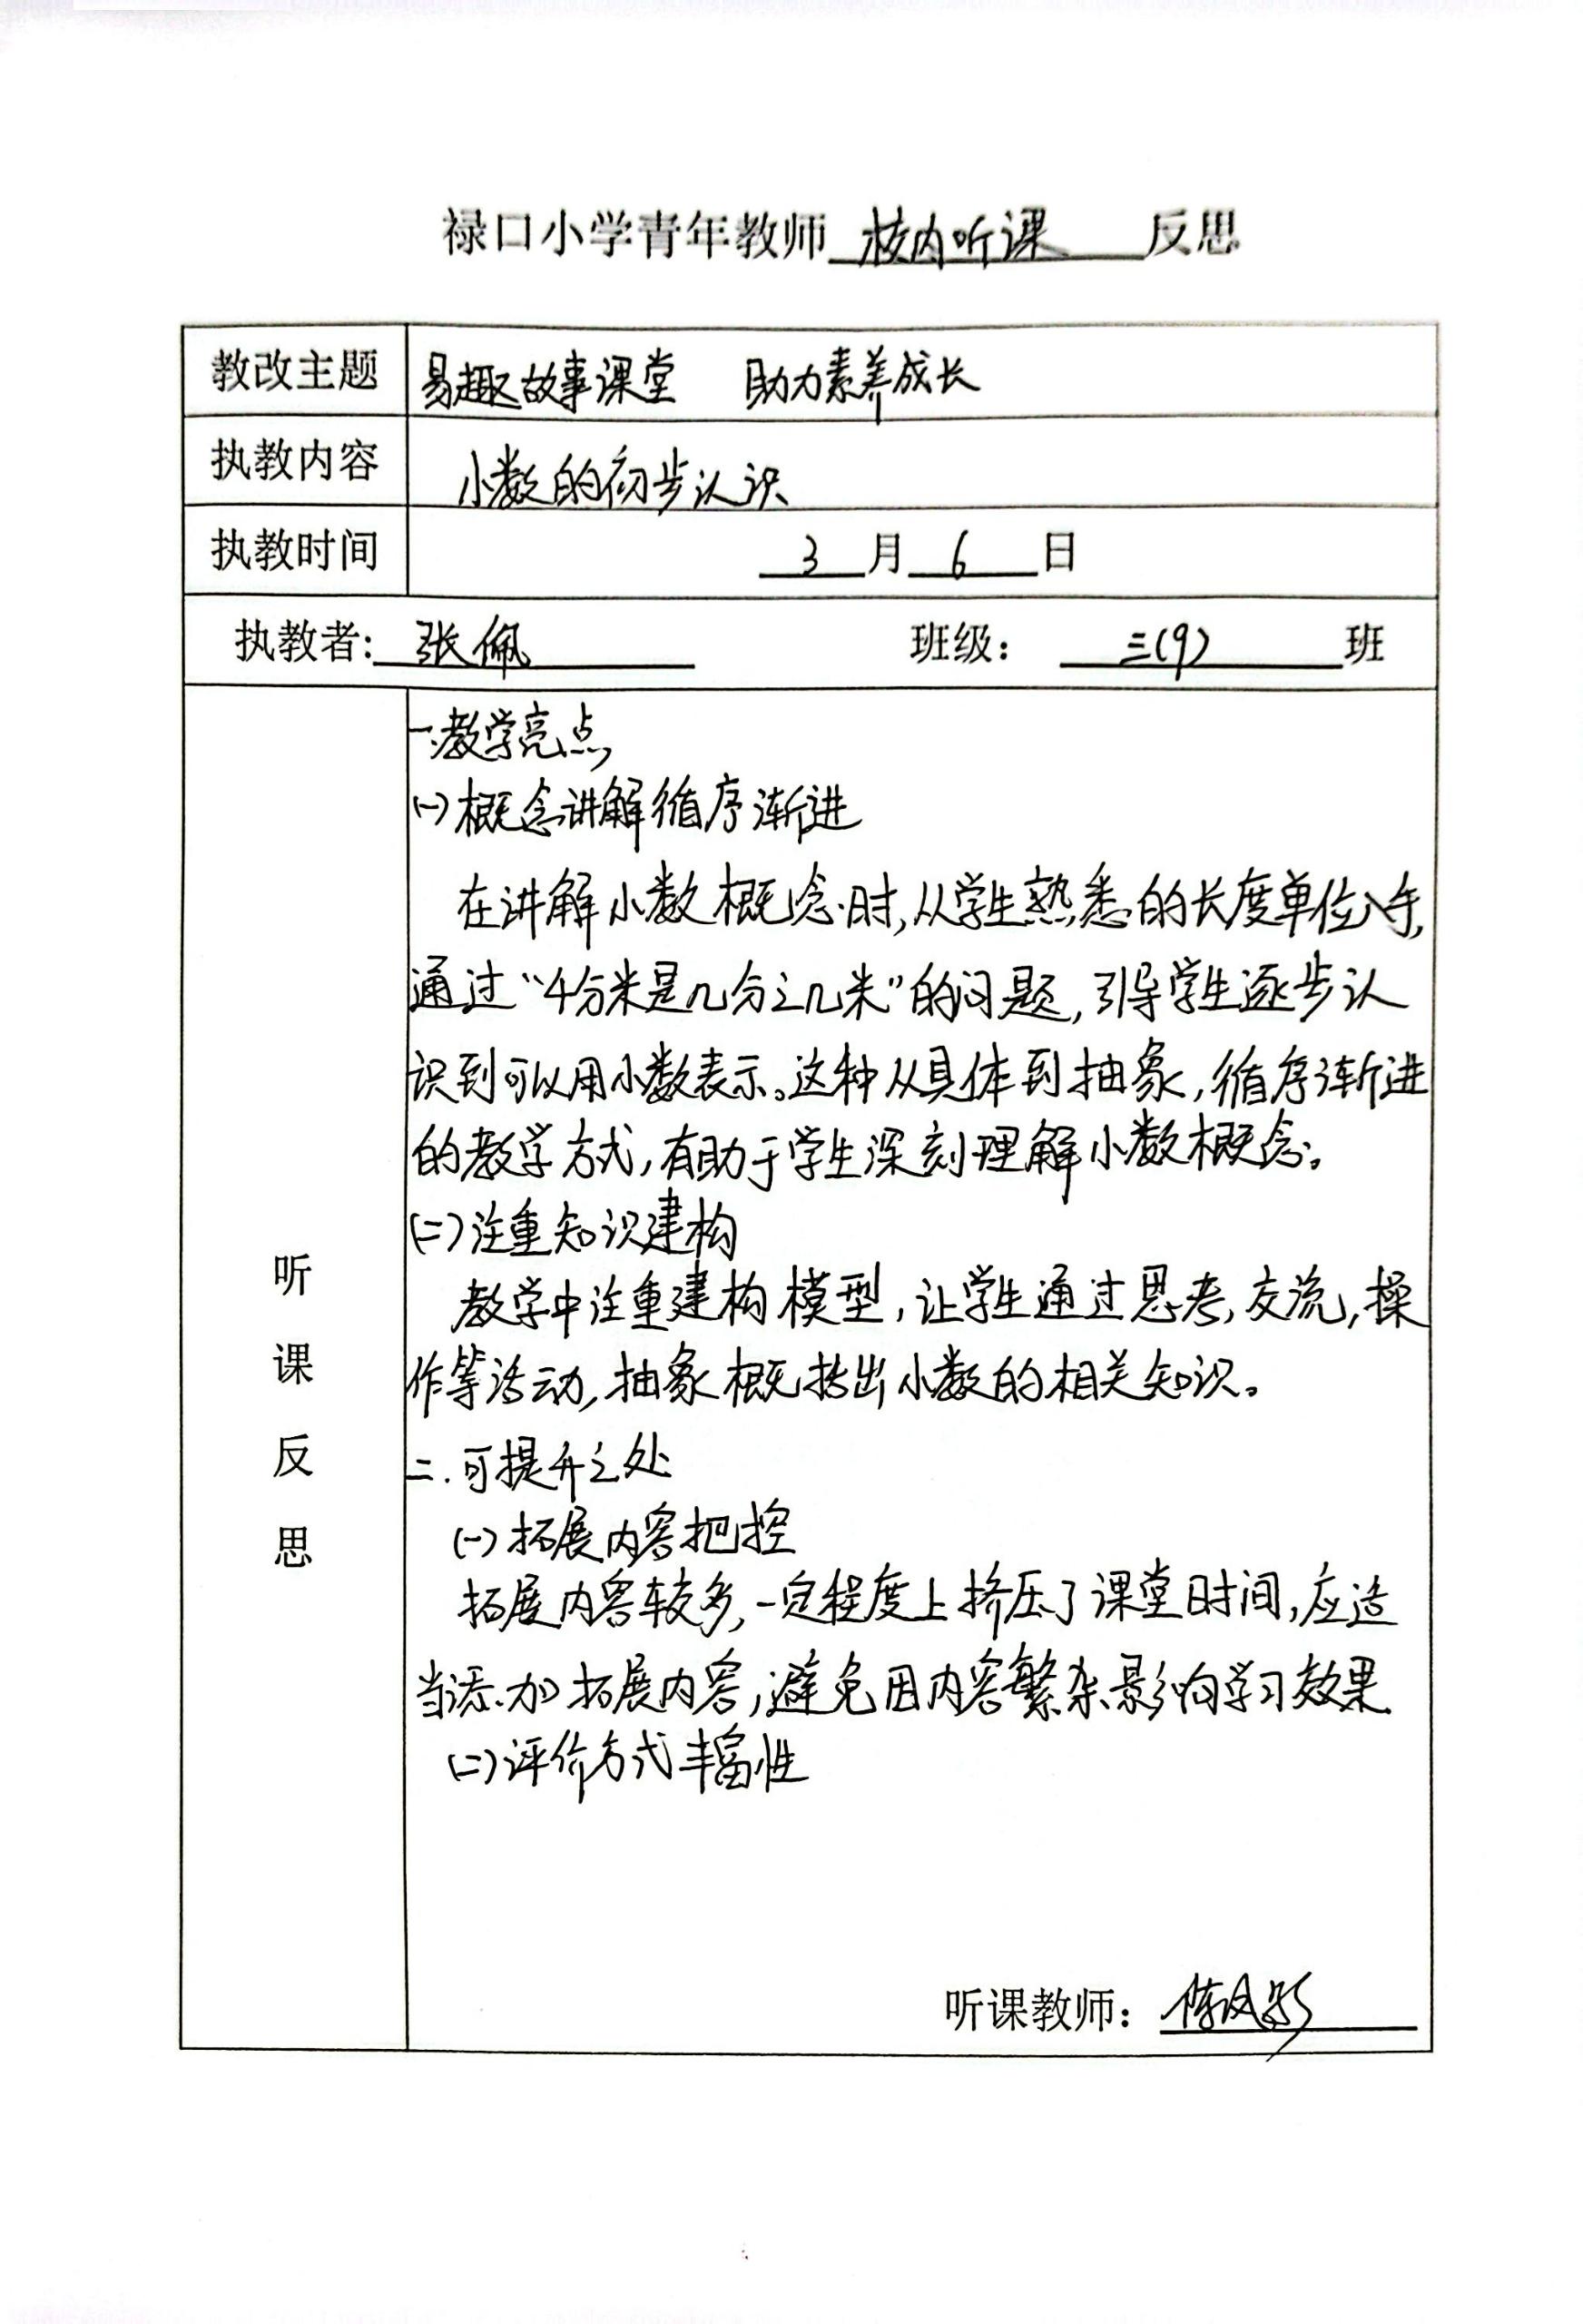 禄口小学青年教师 校内听课 反思
教改主题 易趣故事课堂 助力素养成长
执教内容 小数的初步认识
执教时间 3月6日
执教者: 张佩 班级: 三(9) 班
听课反思
一.教学亮点
(一)概念讲解循序渐进
在讲解小数概念时,从学生熟悉的长度单位入手,
通过“4分米是几分之几米”的问题,引导学生逐步认
识到可以用小数表示。这种从具体到抽象,循序渐进
的教学方式,有助于学生深刻理解小数概念。
(二)注重知识建构
教学中注重建构模型,让学生通过思考,交流,操
作等活动,抽象概括出小数的相关知识。
二.可提升之处
(一)拓展内容把控
拓展内容较多,一定程度上挤压了课堂时间,应适
当添加拓展内容,避免因内容繁杂影响学习效果
(二)评价方式丰富性
听课教师: 陈凤